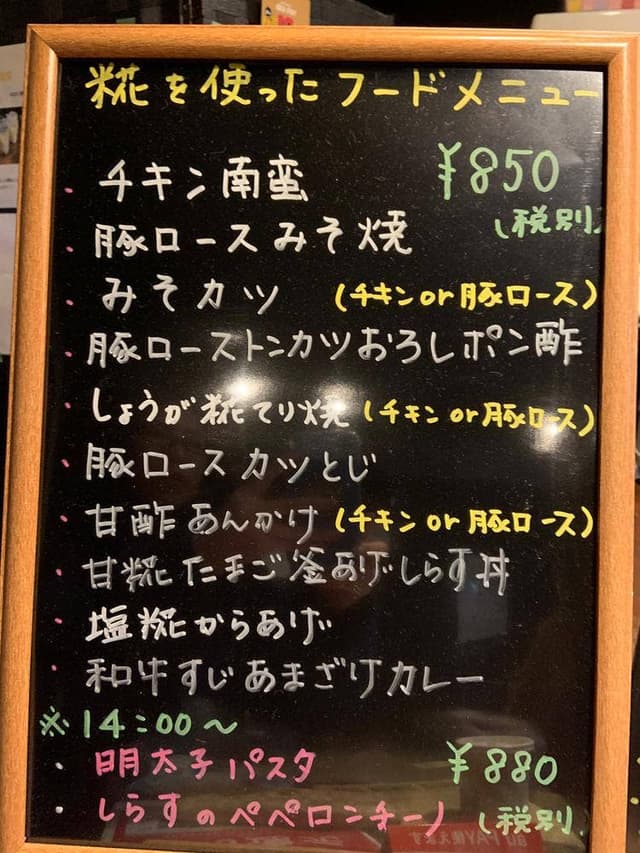 糀を使ったフードメニュー
・チキン南蛮 ¥850
(税別)
・豚ロースみそ焼
・みそカツ (チキンor豚ロース)
・豚ローストンカツおろしポン酢
・しょうが糀てり焼 (チキンor豚ロース)
・豚ロースカツとじ
・甘酢あんかけ (チキンor豚ロース)
・甘糀たまご釜あげしらす丼
・塩糀からあげ
・和牛すじあまざけカレー
※14:00〜
・明太子パスタ ¥880
・しらすのペペロンチーノ (税別)